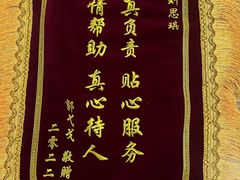 刘思琪
真负责 贴心服务
情帮助 真心待人
敬赠
二零二二